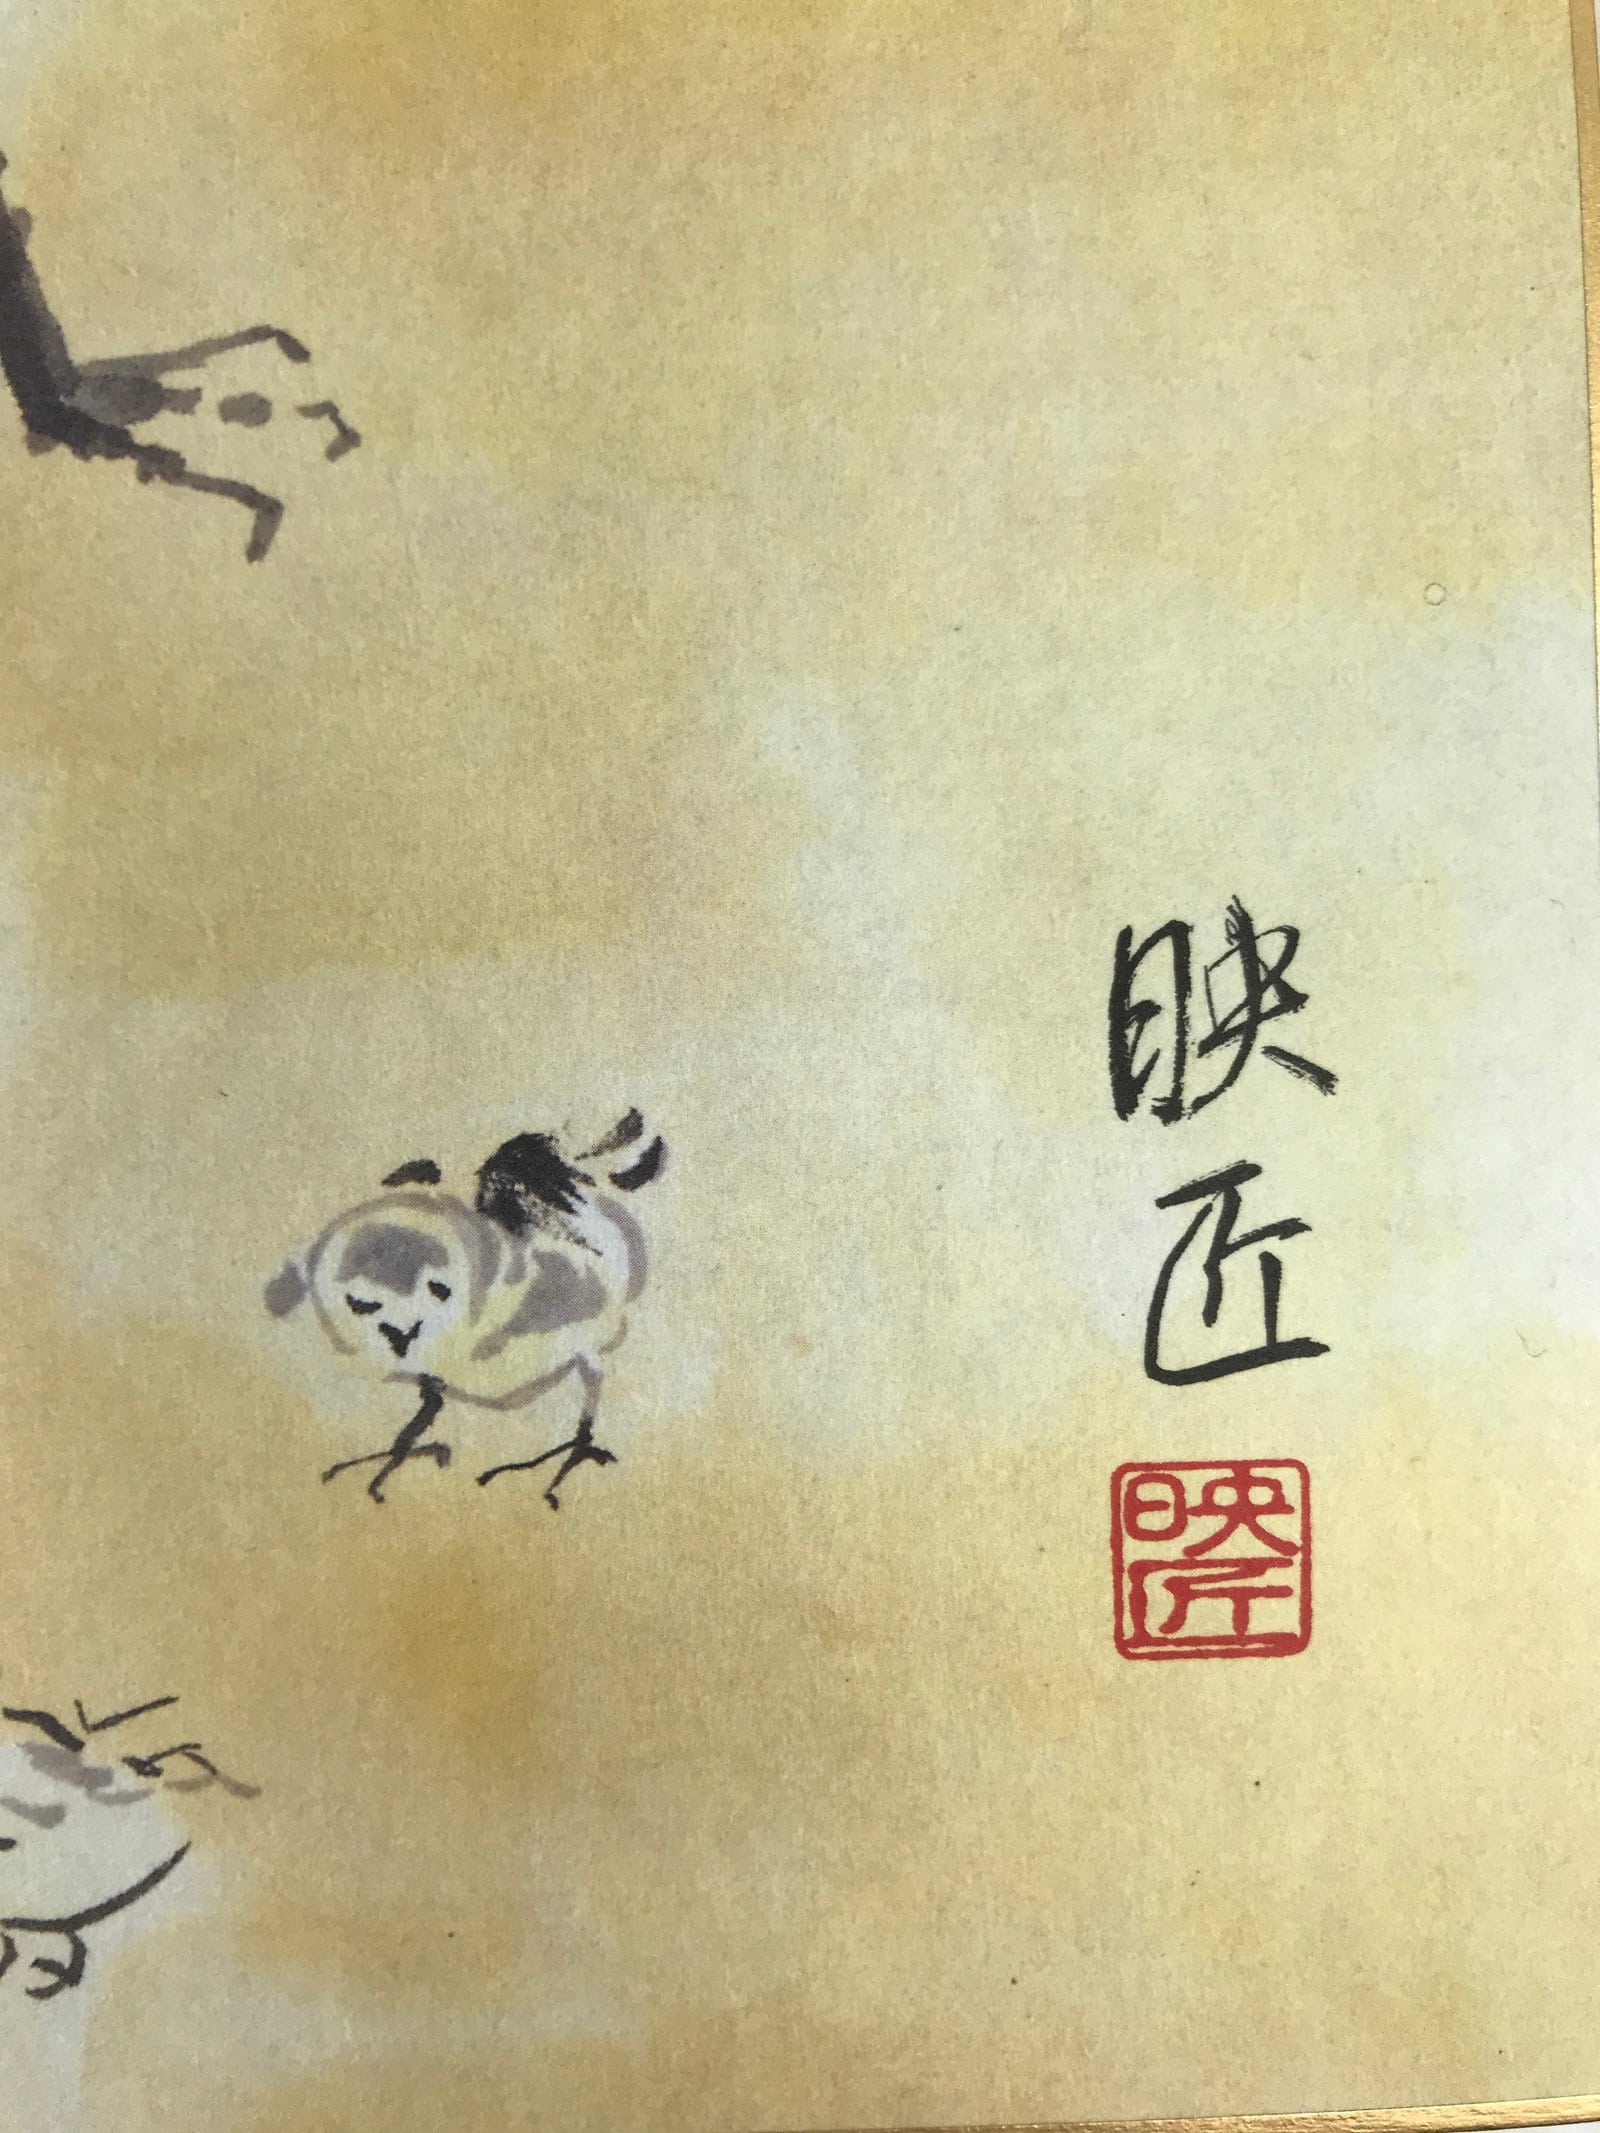 映
匠
映
匠